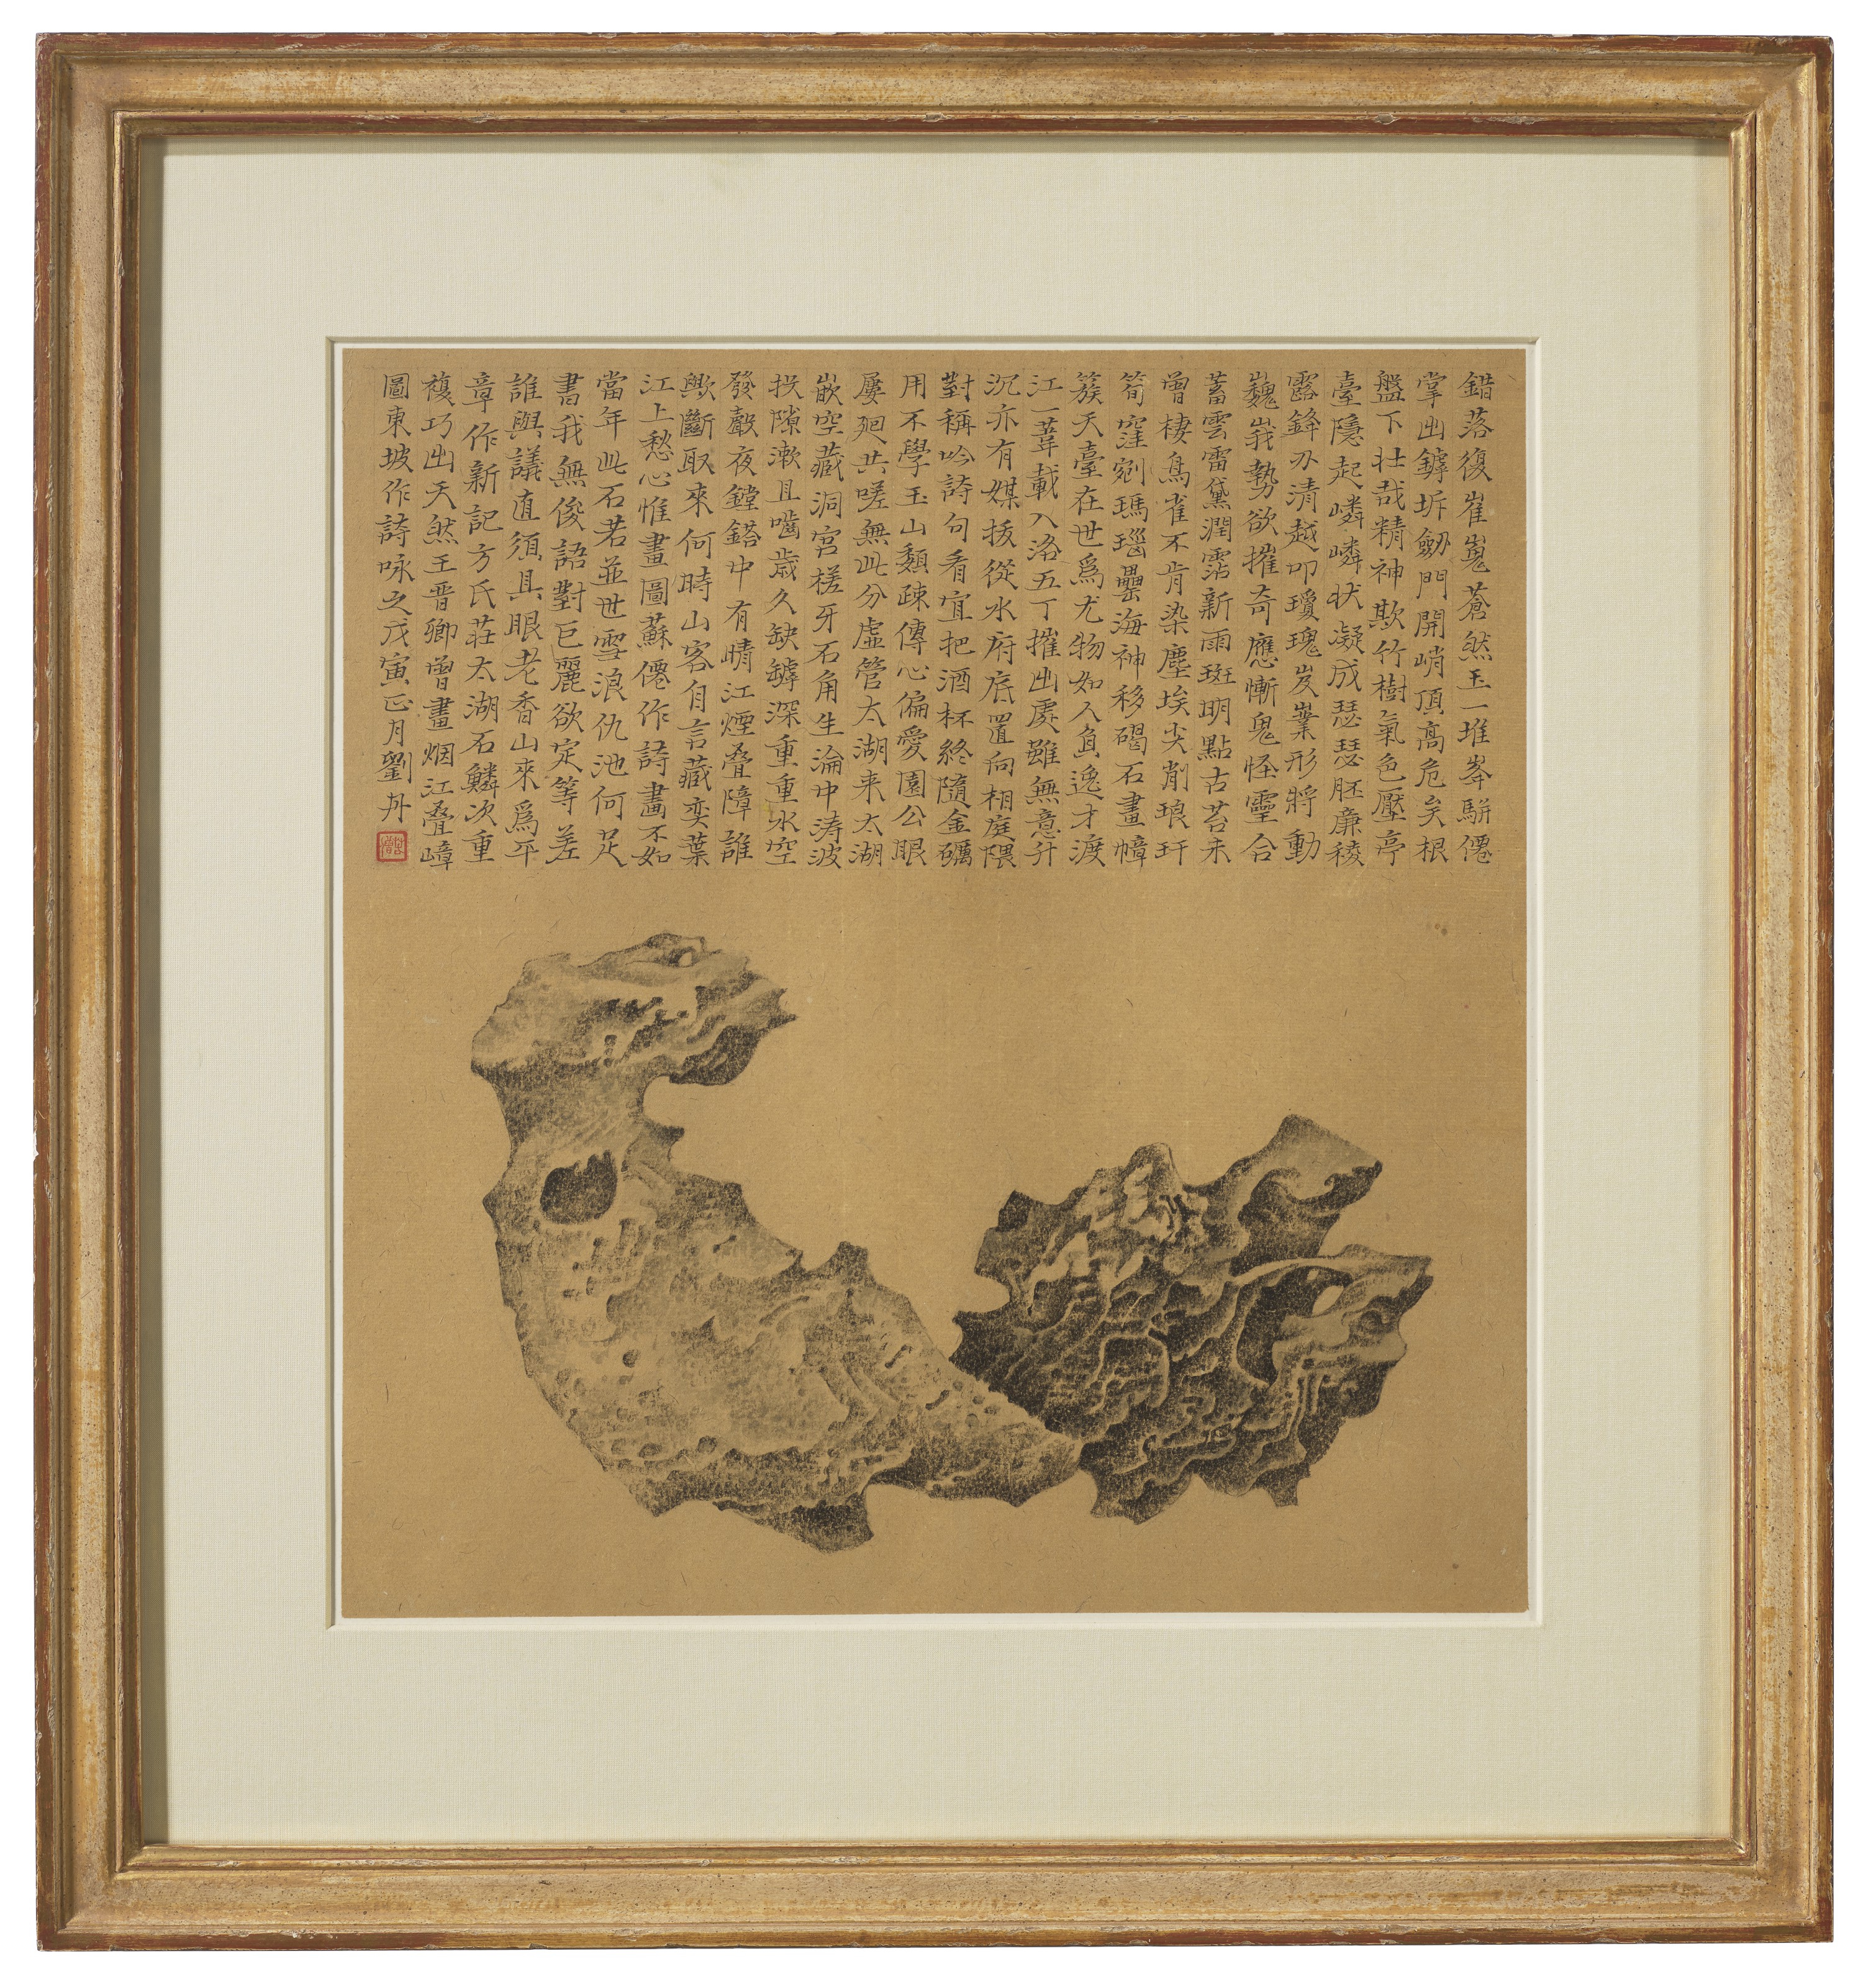 錯落復崔嵬蒼然玉一堆峯駢僊
掌出罅坼劒門開峭頂高危矣根
盤下壯哉精神欺竹樹氣色壓亭
臺隱起嶙嶙狀凝成瑟瑟胚廉稜
露鋒刃清越叩瓊瑰岌嶪形將動
巍峩勢欲摧奇應慚鬼怪靈合
蓄雲雷黛潤霑新雨斑明點古苔未
曾棲鳥雀不肯染塵埃尖削琅玕
筍窪剜瑪瑙罍海神移碣石畫幛
簇天臺在世爲尤物如人負逸才渡
江一葦載入洛五丁摧出處雖無意升
沉亦有媒拔從水府底置向相庭隈
對稱吟詩句看宜把酒杯終隨金礪
用不學玉山頹疎傳心偏愛園公眼
屢廻共嗟無此分虛管太湖来太湖
嵌空藏洞宮槎牙石角生淪中涛波
投隙漱且嚙歲久缺罅深重重水空
發聲夜鏜鎝中有晴江煙疊障誰
歟斷取來何時山客自言藏奕葉
江上愁心惟畫圖蘇僊作詩畫不如
當年此石若並世雪浪仇池何足
書我無俊語對巨麗欲定等差
誰與議直須具眼老香山來爲平
章作新記方氏莊太湖石鱗次重
複巧出天然王晉卿曾畫烟江疊嶂
圖東坡作詩咏之戊寅正月劉丹